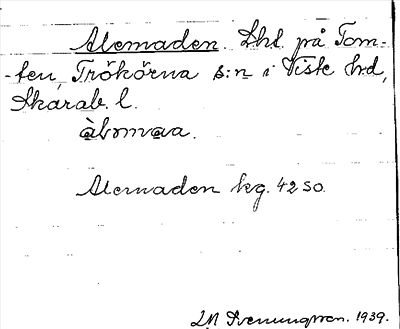 Alemaden. Lht på Tom-
-ten, Trökörna s:n i Viste hd,
Skarab. l.
Alemaden kg. 42 SO.
LM Svenungsson. 1939.